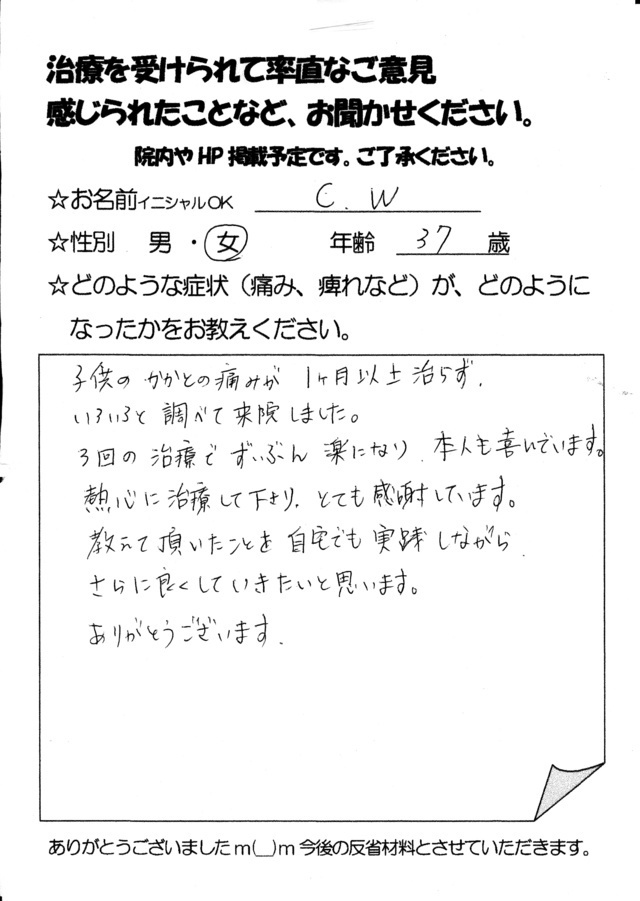 治療を受けられて率直なご意見
感じられたことなど、お聞かせください。
院内やHP掲載予定です。ご了承ください。
☆お名前イニシャルOK C.W
☆性別 男・女 年齢 37 歳
☆どのような症状（痛み、痺れなど）が、どのように
なったかをお教えください。
子供のかかとの痛みが 1ヶ月以上治らず、
いろいろと調べて来院しました。
3回の治療でずいぶん楽になり、本人も喜んでいます。
熱心に治療して下さり、とても感謝しています。
教えて頂いたことを自宅でも実践しながら
さらに良くしていきたいと思います。
ありがとうございます.
ありがとうございましたm(__)m今後の反省材料とさせていただきます。